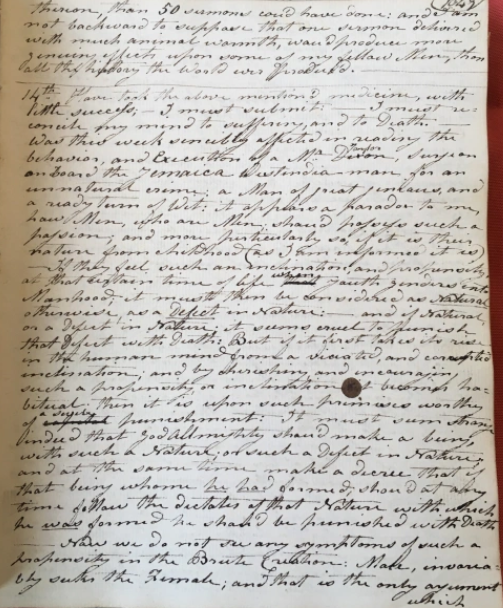 thereon, than 50 sermons could have done: and I am
not backward to suppose that one sermon delivered
with much animal warmth, would produce more
genuine effects upon some of my fellow Men, than
all the history the World ever produced.
14th. Have took the above mentiond medicine, with
little success; — I must submit: — I must re:
concile my mind to suffering, and to Death
Was this week sencibly affected in reading the
behavior, and Execution of a Mr. Taylor, surgeon
on board the Jemaica Westindia-man for an
unnatural crime; a Man of great geneaus, and
a ready turn of Wit: it appears a paradox to me,
how Men, who are Men, should possess such a
passion; and more particularly so, if it is their
nature from childhood (as I am informed it is)
— If they feel such an inclination, and propensity,
at that certain time of life when youth genders into
Manhood; it must then be considered as Natural
otherwise, as a Defect in Nature: — and if Natural,
or a defect in Nature; it seems cruel to punish
that Defect with Death: But if it first takes its rise
in the human mind from a viciated, and corrupted
inclination; and by cherishing and encourajin
such a propensity or inclination it becomes ha=
bitual: then it is upon such premises worthy
of punishment: It must seem strange
indeed that God Almighty should make a being,
with such a Nature; or such a Defect in Nature;
and at the same time make a decree that if
that being whome he had formed, should at any
time follow the dictates of that Nature with which
he was formed he should be punished with Death
— Now we do not see any symptoms of such a
propensity in the Brute Creation: Male, invaria=
bly seeks the Female; and that is the only argument
which